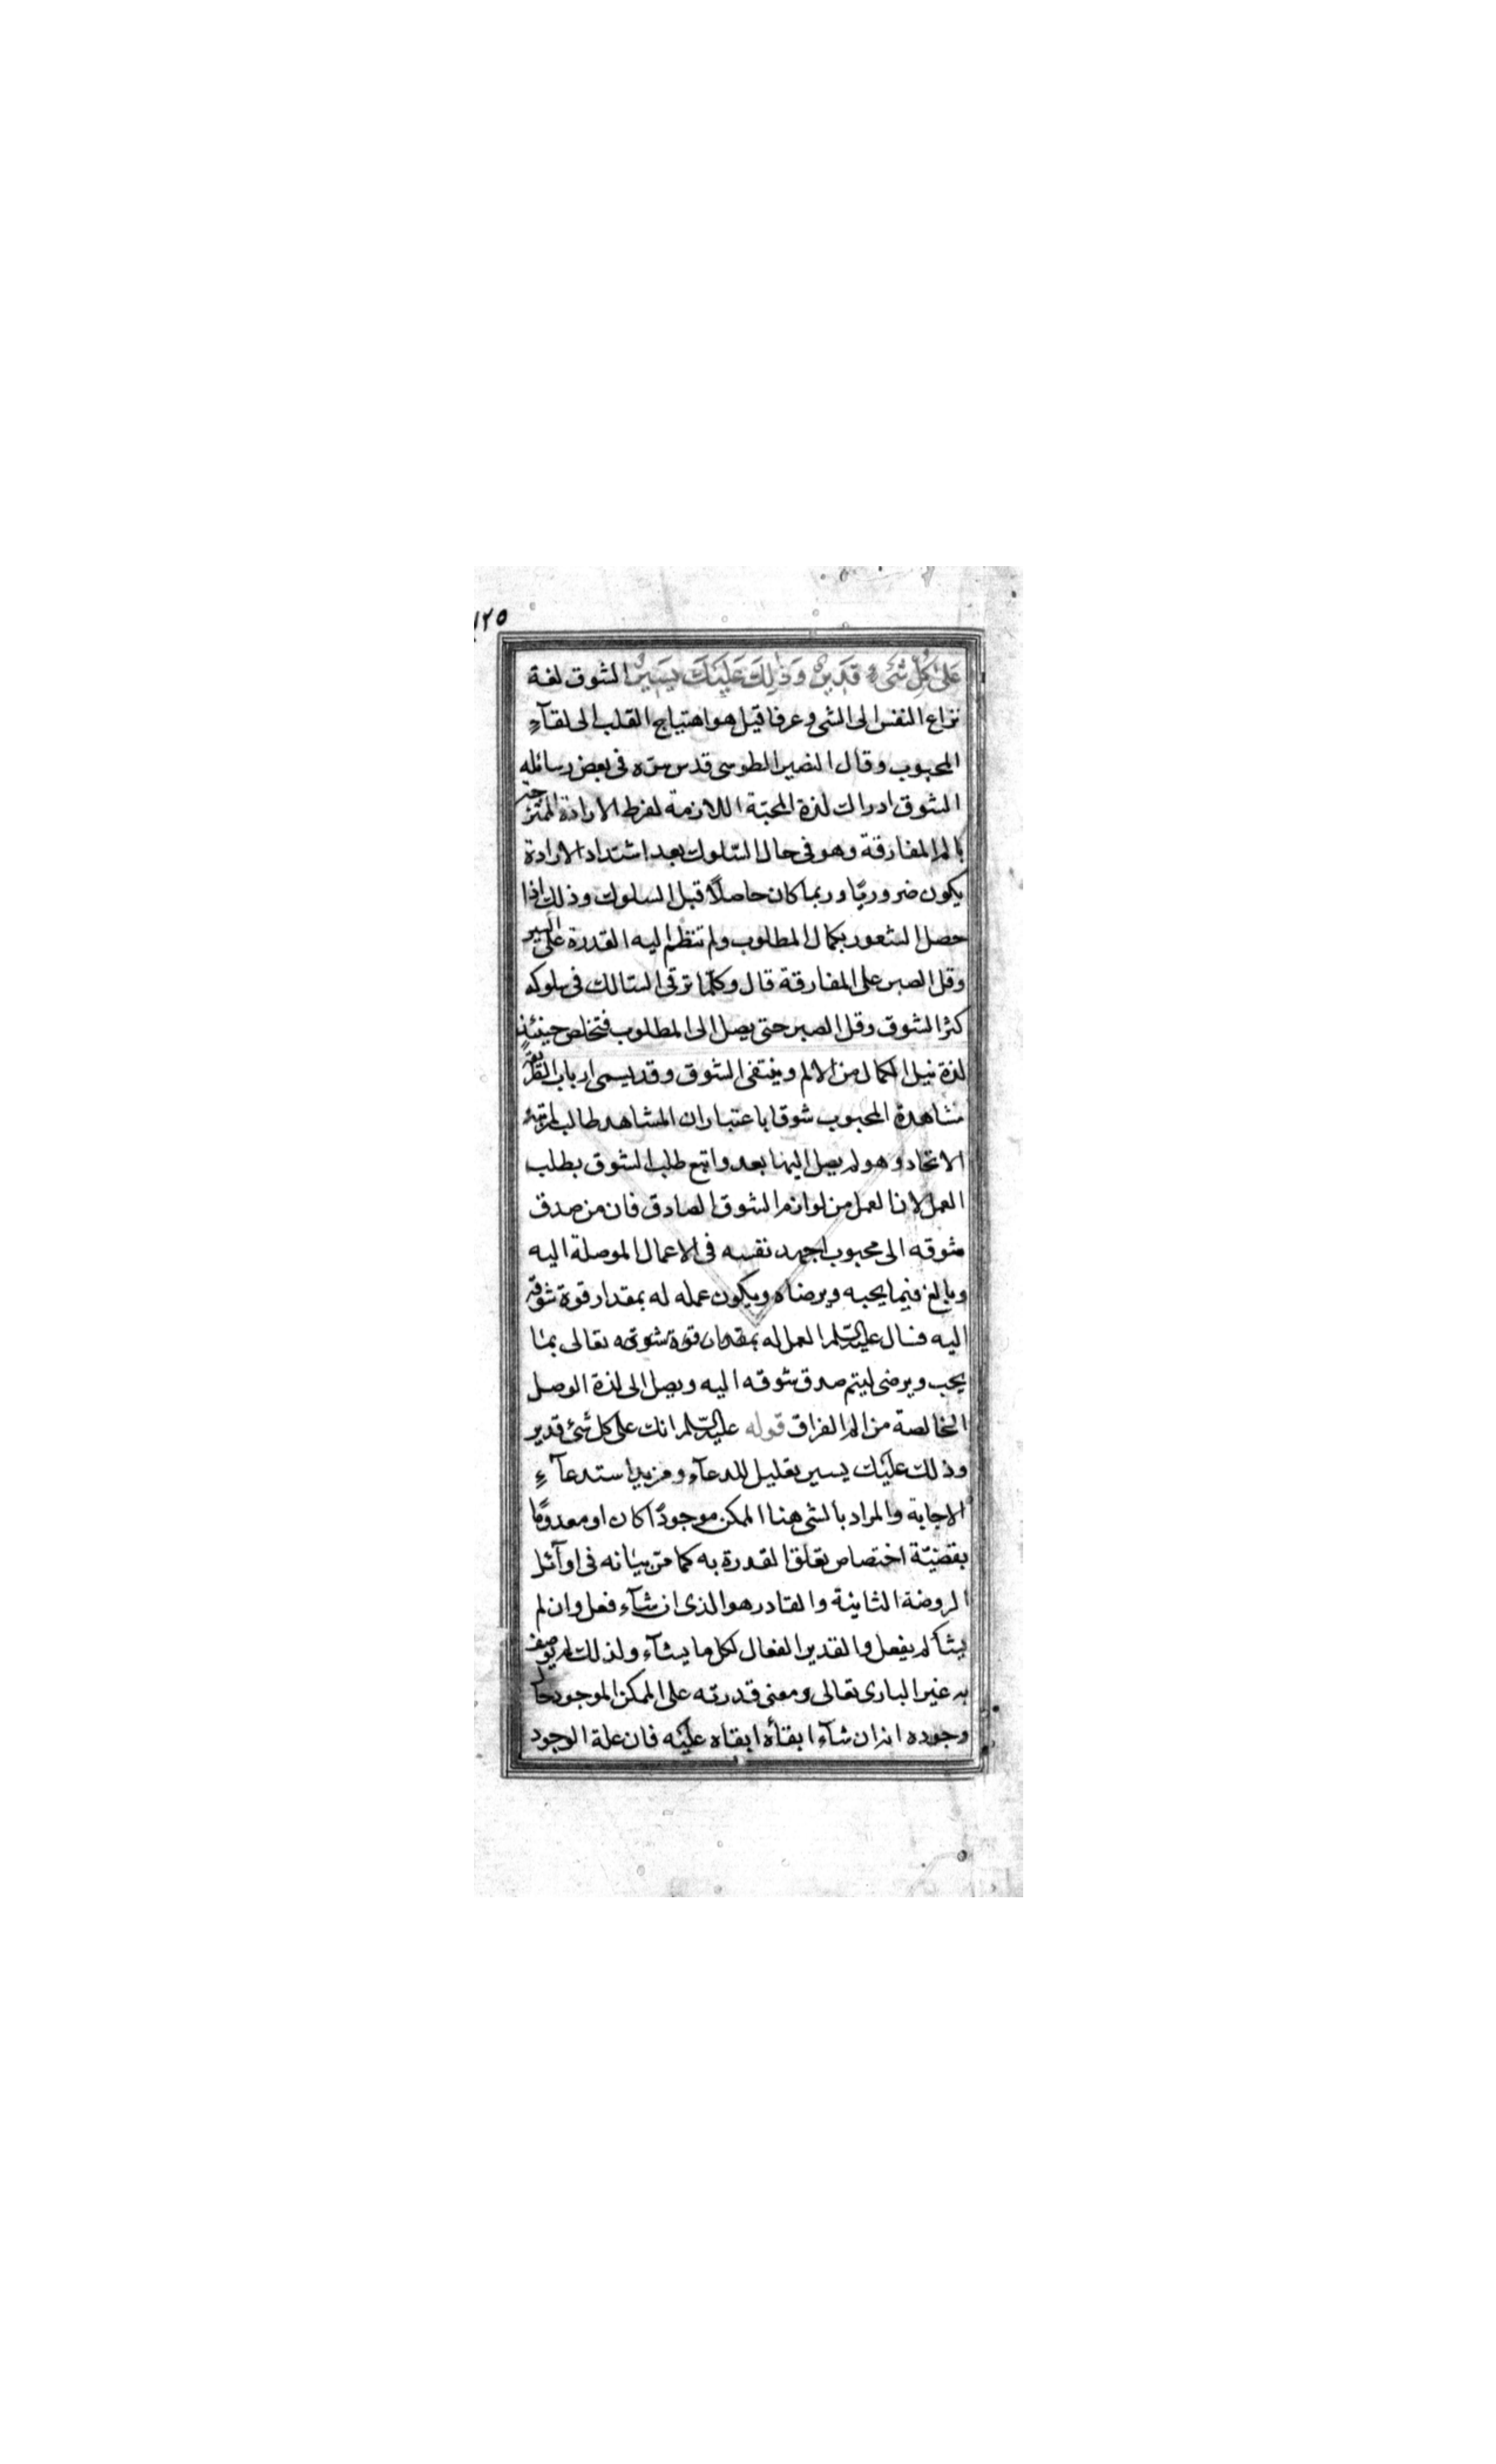 ١٢٥
عَلىٰ كُلِّ شَىْءٍ قَدِيرٌ وَذٰلِكَ عَلَيْكَ يَسِيرٌ الشوق لغة
نزاع النفس الى الشى وعرفا قيل هو اهتياج القلب الى لقآءِ
المحبوب وقال النصير الطوسى قدس سرّه فى بعض رسائله
الشوق ادراك لذة المحبّة اللازمة لفرط الارادة الممتزجة
بالم المفارقة وهو فى حال السّلوك بعد اشتداد الارادة
يكون ضروريّا وربما كان حاصلاً قبل السلوك وذلك اذا
حصل الشعور بكمال المطلوب ولم تنظم اليه القدرة على السير
وقل الصبر على المفارقة قال وكلّما ترقى السّالك فى سلوكه
كثر الشوق وقل الصبر حتى يصل الى المطلوب فتخلص حينئذٍ
لذة نيل الكمال من الالم وينتفى الشوق وقد يسمى ارباب الطّريقة
مشاهدة المحبوب شوقا باعتبار ان المشاهد طالب لمرتبة
الاتحاد وهو لم يصل اليها بعد واتبع طلب الشوق بطلب
العمل لان العمل من لوازم الشوق الصادق فان من صدق
شوقه الى محبوب اجهد نفسه فى الاعمال الموصلة اليه
وبالغ فيما يحبه ويرضاه ويكون عمله له بمقدار قوة شوقه
اليه فسال عليه السّلم العمل له بمقدار قوة شوقه تعالى بما
يحب ويرضى ليتم صدق شوقه اليه ويصل الى لذة الوصل
الخالصة من الم الفراق قوله عليه السّلم انك على كل شئ قدير
وذلك عليك يسير تعليل للدعآء ومزيد استدعآءٍ
الاجابة والمراد بالشى هنا الممكن موجودًا كان او معدومًا
بقضيّة اختصاص تعلق القدرة به كما مرّ بيانه فى اوآئل
الروضة الثانية والقادر هو الذى ان شآء فعل وان لم
يشأ لم يفعل والقدير الفعال لكل ما يشآء ولذلك لم يوصف
به غير البارى تعالى ومعنى قدرته على الممكن الموجود حال
وجوده انه ان شآء ابقآه ابقاه عليه فان علة الوجود